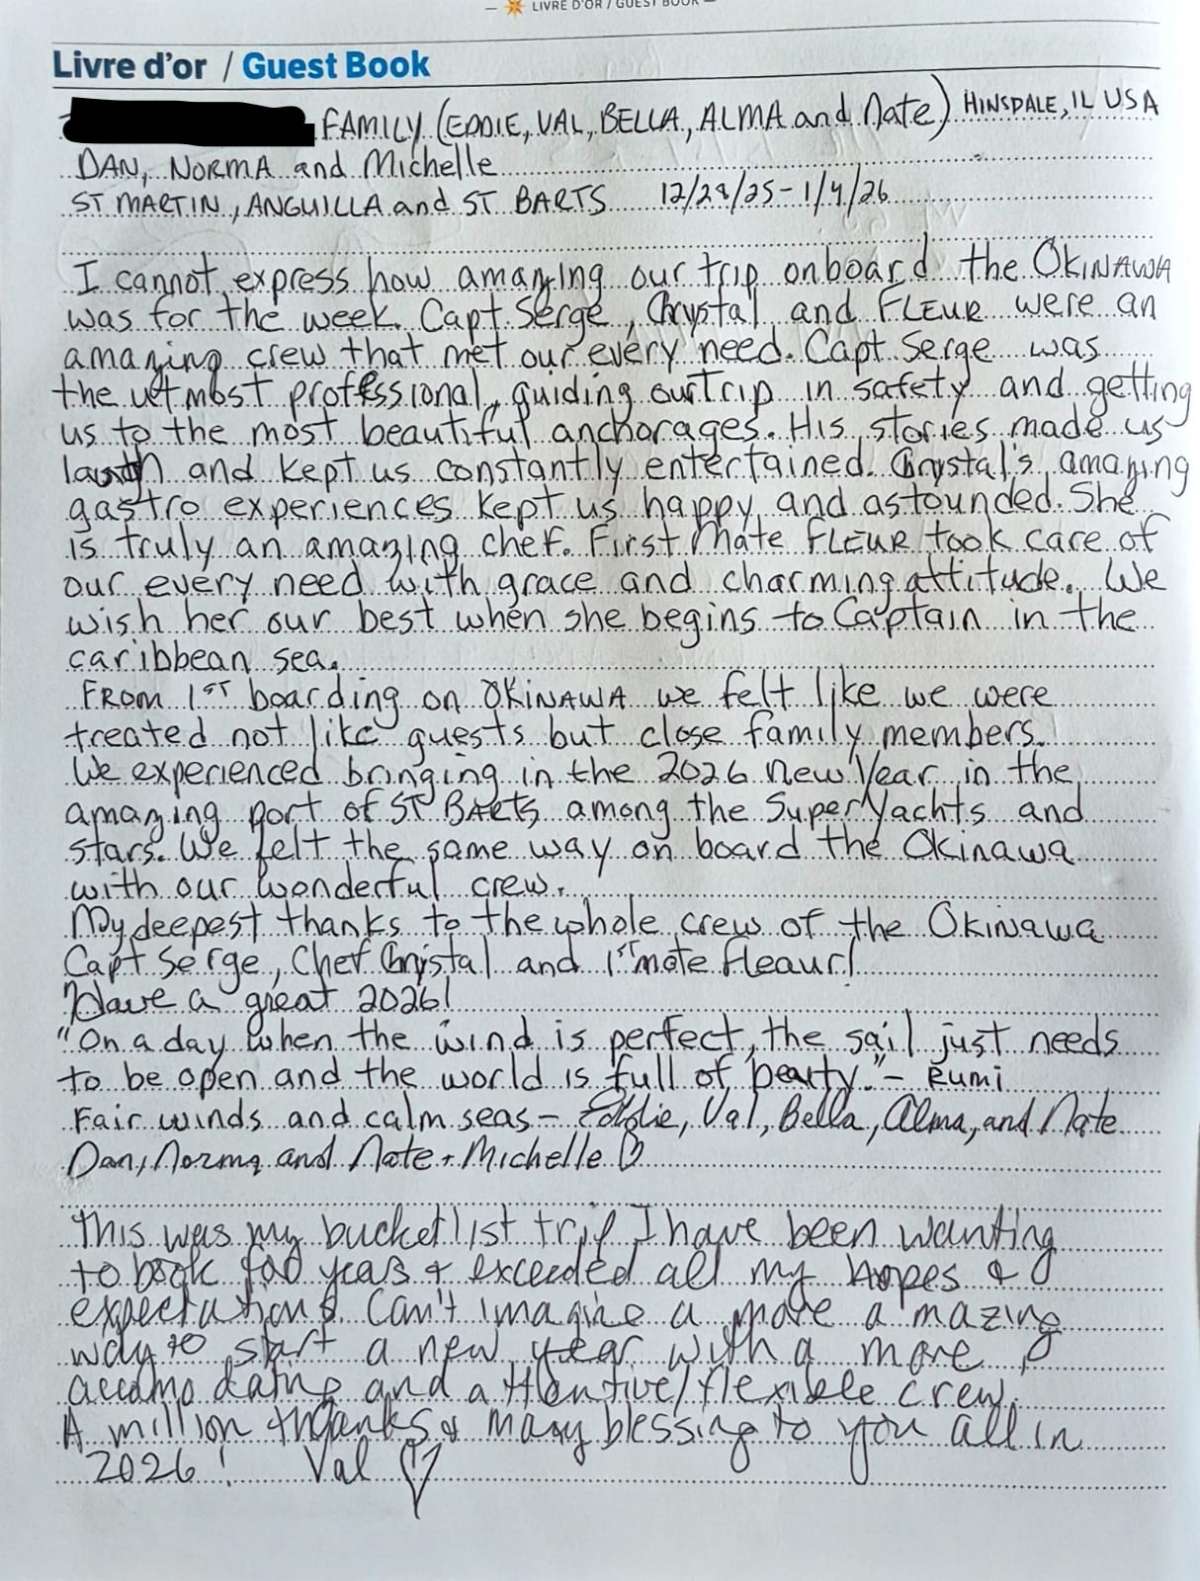 — LIVRE D'OR / GUEST BOOK —
Livre d'or / Guest Book
FAMILY (EDDIE, VAL, BELLA, ALMA and Nate) HINSDALE, IL USA
DAN, NORMA and Michelle
ST MARTIN, ANGUILLA and ST BARTS 12/28/25 - 1/4/26
I cannot express how amazing our trip onboard the OKINAWA
was for the week. Capt. Serge, Chrystal and FLEUR were an
amazing crew that met our every need. Capt Serge was
the utmost professional, guiding our Trip in safety and getting
us to the most beautiful anchorages. His stories made us
and kept us constantly entertained. Chrystal's amazing
gastro experiences kept us happy and astounded. She
is truly an amazing chef. First Mate FLEUR took care of
our every need with grace and charming attitude. We
wish her our best when she begins to Captain in the
caribbean sea.
FROM 1ST boarding on OKINAWA we felt like we were
treated not like guests but close family members.
We experienced bringing in the 2026 New Year in the
amazing port of ST BARTS among the Super Yachts and
stars. We felt the same way on board the Okinawa
with our wonderful crew.
My deepest thanks to the whole crew of the Okinawa
Capt Serge, Chef Chrystal and 1st mate Fleaur!
Have a great 2026!
"On a day when the wind is perfect, the sail just needs
to be open and the world is full of beauty." - Rumi
Fair winds and calm seas - Eddie, Val, Bella, Alma, and Nate
Dan, Norma and Nate + Michelle ♡
This was my bucket list trip I have been wanting
to book for years & exceeded all my hopes &
expectations. Can't imagine a more amazing
way to start a new year with a more
accomodating and attentive/flexible crew.
A million thanks & many blessing to you all in
2026! Val ♡